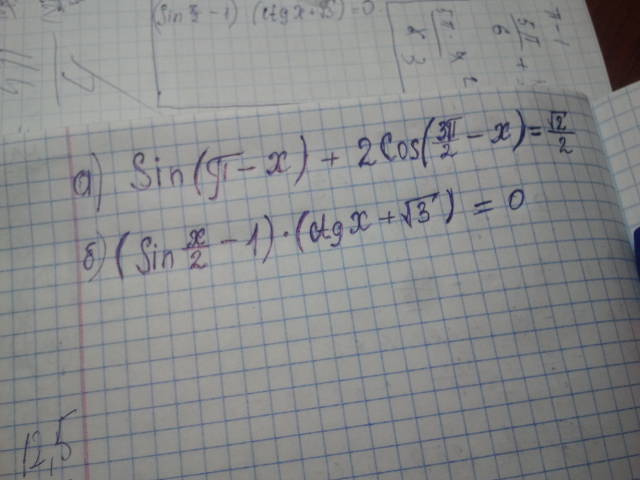 (Sin x/2 - 1) (ctg x + √3) = 0
а) Sin(π - x) + 2Cos(3π/2 - x) = √2/2
б) (Sin x/2 - 1)·(ctg x + √3) = 0
12,5